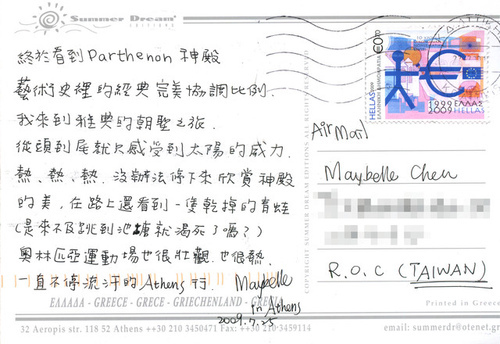 Summer Dream
EDITIONS
終於看到Parthenon 神殿
藝術史裡的經典完美協調比例.
我來到雅典的朝聖之旅.
從頭到尾就只感受到太陽的威力.
熱、熱、熱. 沒辦法停下來欣賞神殿
的美,在路上還看到一隻乾掉的青蛙
(是來不及跳到池塘就渴死了嗎??)
奧林匹亞運動場也很壯觀.也很熱.
一直不停流汗的Athens 行. Maybelle
in Athens
2009.7.25
ΕΛΛΑΔΑ - GREECE - GRECE - GRIECHENLAND - GRECIA
32 Aeropis str. 118 52 Athens ++30 210 3450471 Fax: ++30 210-3459114
COPYRIGHT SUMMER DREAM EDITIONS ALL RIGHTS RESERVED
€0,70
HELLAS
1999 ΕΛΛΑΣ
2009 HELLAS
Air Mail
Maybelle Chen
R.O.C (TAIWAN)
Printed in Greece
email: summerdr@otenet.gr